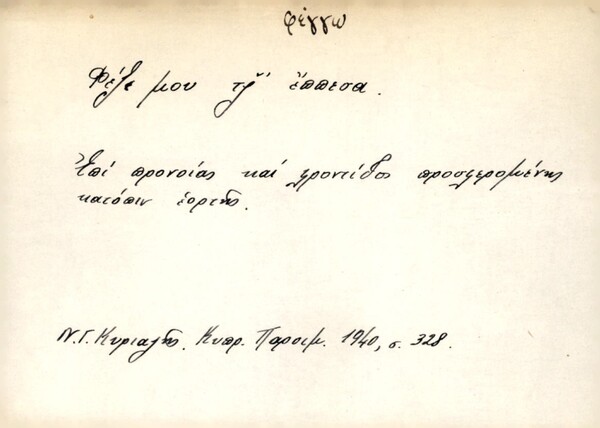 φέγγω
Φέξε μου τζ̌' έππεσα.
Ἐπί προνοίας καί φροντίδος προσφερομένης
κατόπιν ἑορτῆς.
Ν. Γ. Κυριαζῆς. Κυπρ. Παροιμ. 1940, σ. 328.